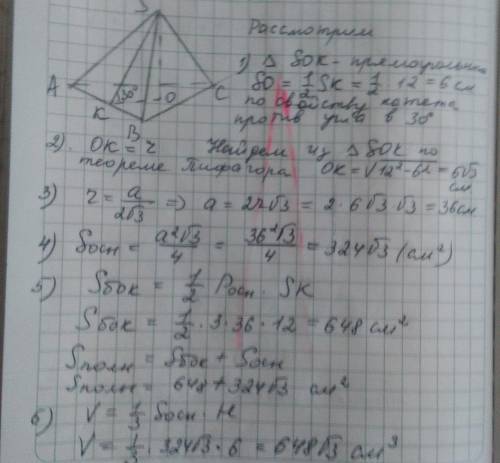 S
Рассмотрим
A
K
30°
O
C
B
1) Δ SOK - прямоугольный
SO = 1/2 SK = 1/2 · 12 = 6 см
по свойству катета
против угла в 30°
2). OK = r Найдем из Δ SOK по
теореме Пифагора OK = √12²-6² = 6√3
см
3) r = a/2√3 => a = 2r√3 = 2·6√3·√3 = 36 см
4) Sосн = a²√3/4 = 36²√3/4 = 324√3 (см²)
5) Sбок = 1/2 Pосн · SK
Sбок = 1/2 · 3·36·12 = 648 см²
Sполн = Sбок + Sосн
Sполн = 648 + 324√3 см²
6) V = 1/3 Sосн · H
V = 1/3 · 324√3 · 6 = 648√3 см³